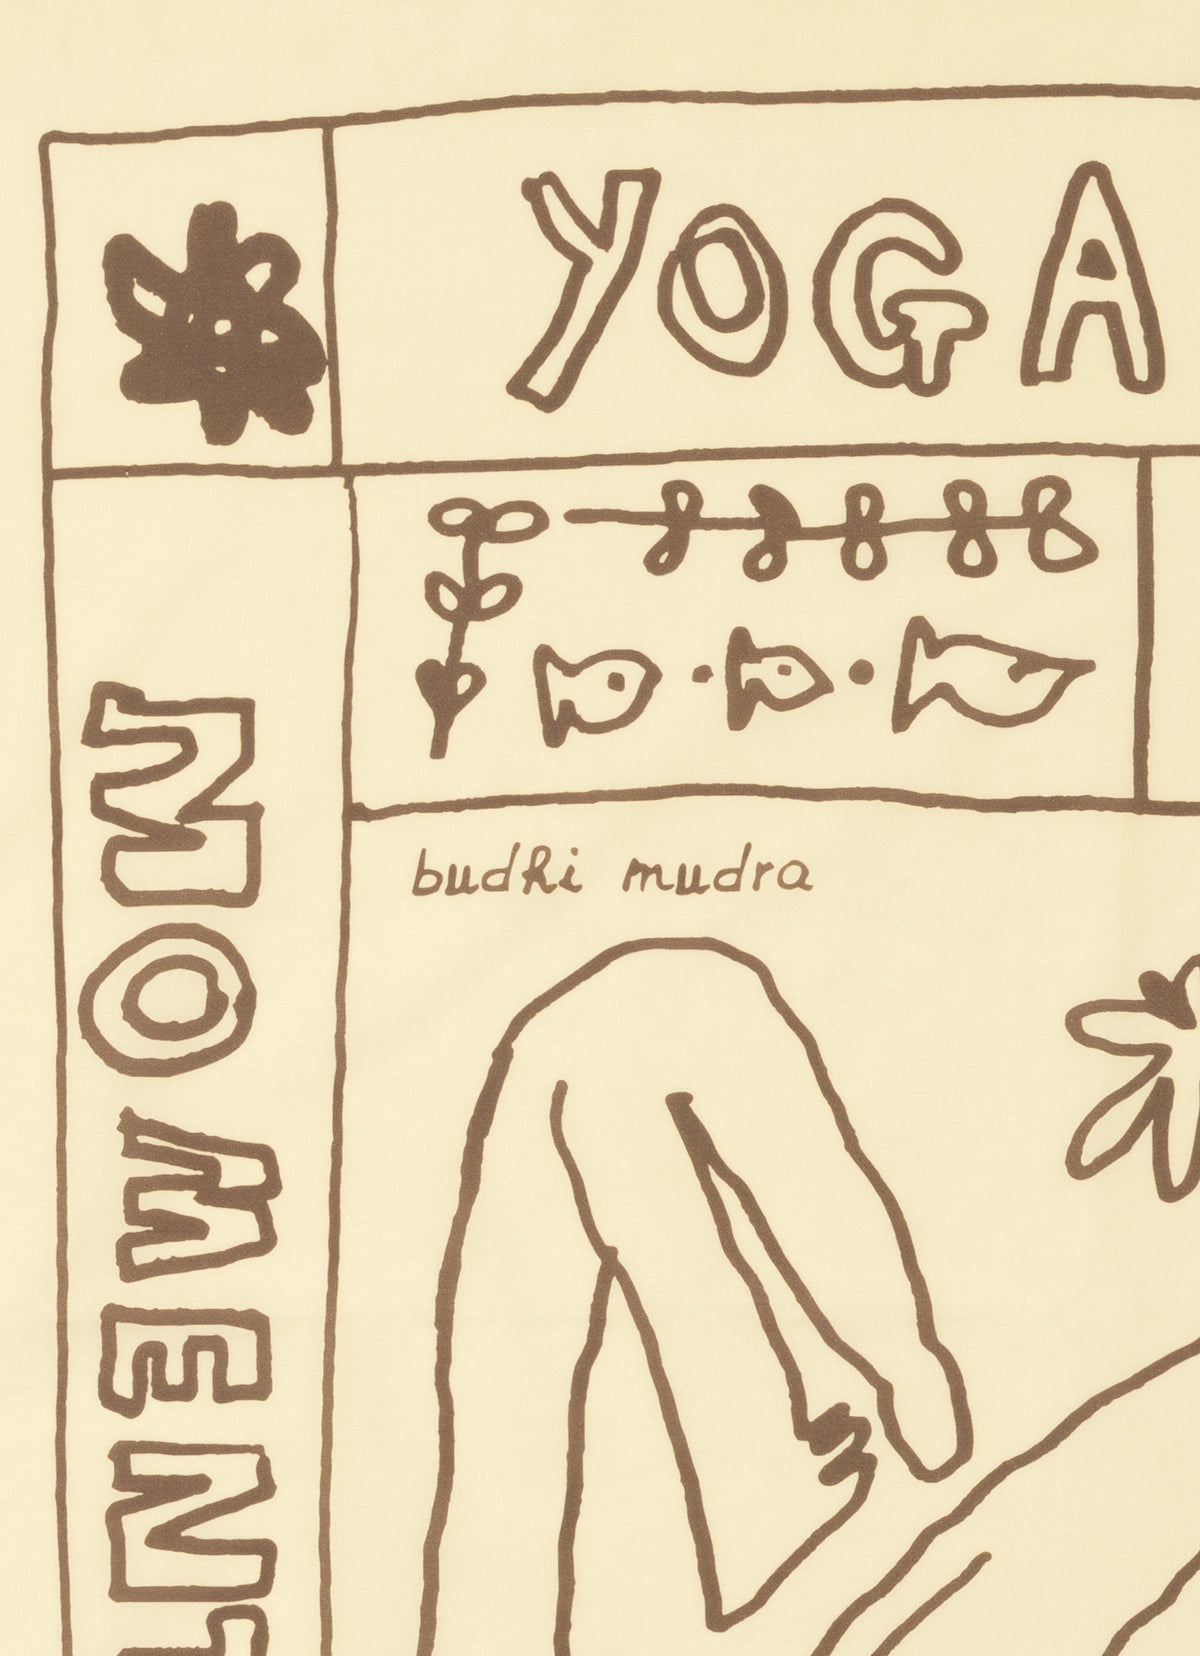 YOGA
MOMENT
budhi mudra